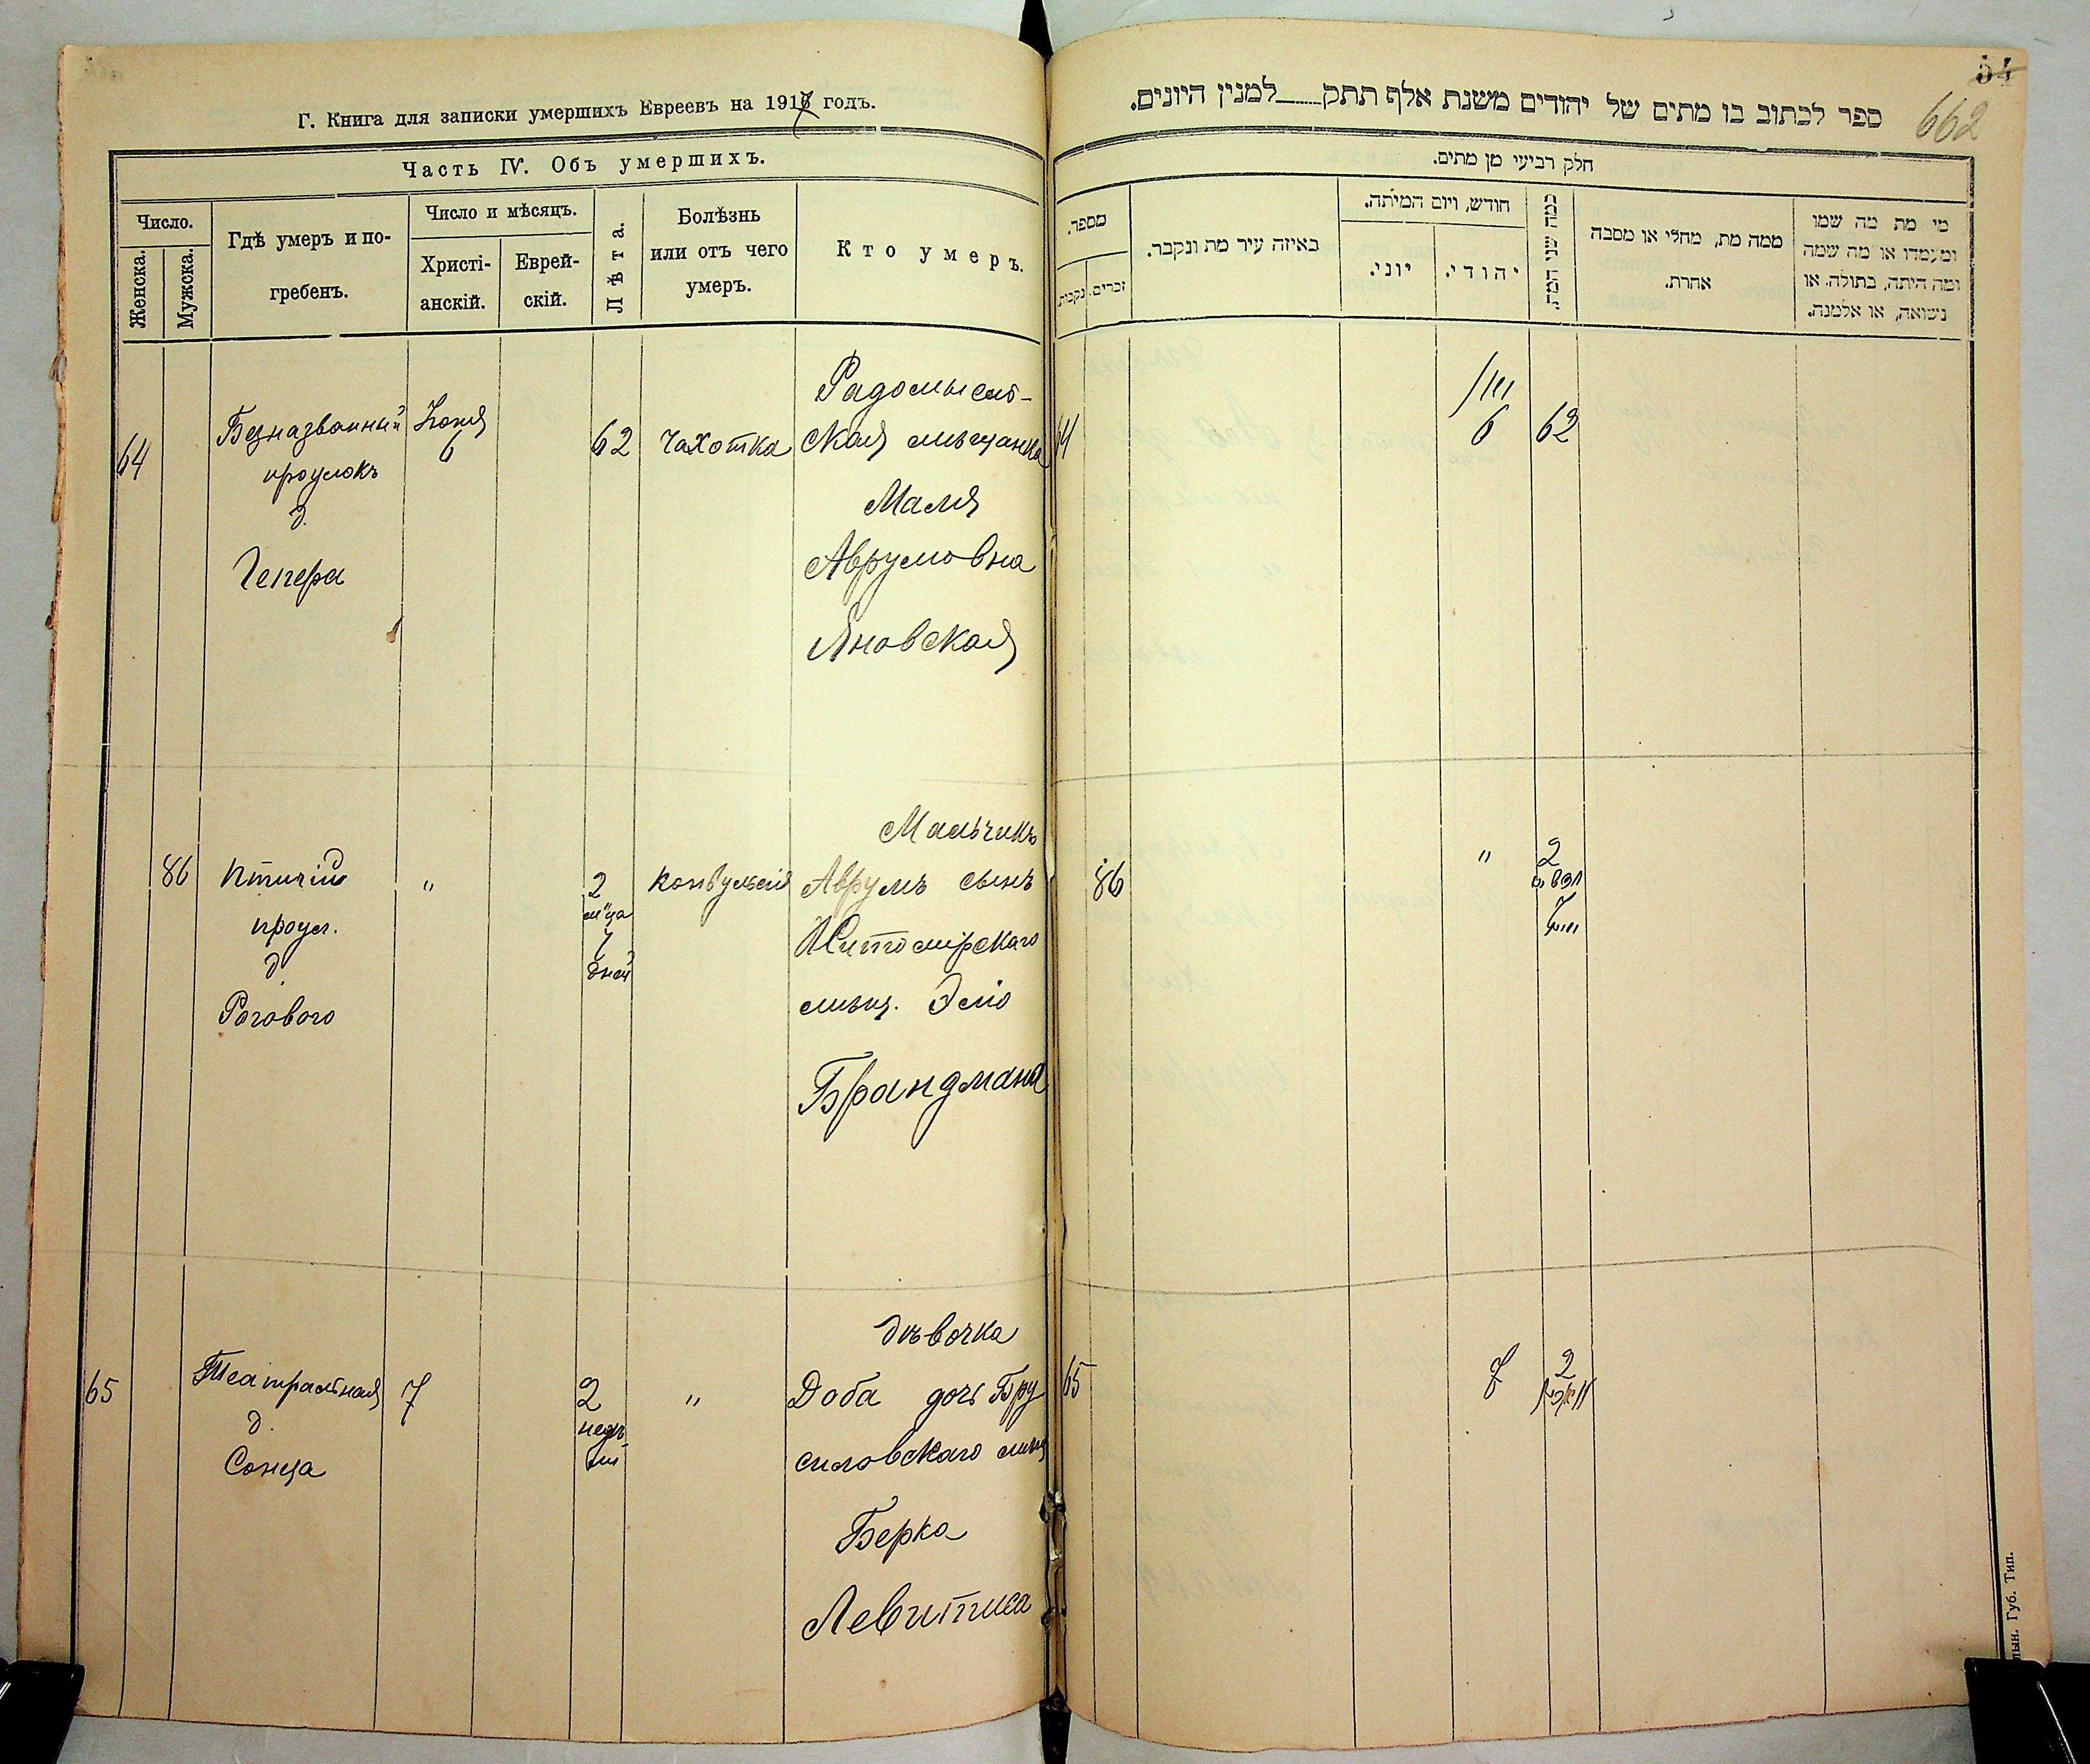 Г. Книга для записки умершихъ Евреевъ на 1917 годъ.
Часть IV. Объ умершихъ.
Число.
Женска.
Мужска.
Гдѣ умеръ и по-
гребенъ.
Число и мѣсяцъ.
Христі-
анскій.
Еврей-
скій.
Лѣта.
Болѣзнь
или отъ чего
умеръ.
Кто умеръ.
64
Безназванный
проулокъ
д.
Гепера
6
62
Чахотка
Радомысль-
ская мѣщанка
Маля
Аврумовна
Яновская
86
Птичій
проул.
д.
Рогового
"
2
м-ца
7
дней
Конвульсія
Мальчикъ
Аврумъ сынъ
Житомірскаго
мѣщ.
Брандмана
65
Театральная
д.
Сонца
7
2
недѣ
ли
"
дѣвочка
Доба дочь Бру
силовскаго мѣщ
Берка
Левитиса
54
662
ספר לכתוב בו מתים של יהודים משנת אלף תתק למנין היונים.
חלק רביעי מן מתים.
מספר.
נקבות.
זכרים.
באיזה עיר מת ונקבר.
חודש, ויום המיתה.
יוני.
יהודי.
כמה שני המת.
ממה מת, מחלי או מסבה
אחרת.
מי מת מה שמו
ומעמדו או מה שמה
ומה היתה, בתולה. או
נשואה, או אלמנה.
64
6
62
86
"
2
65
7
2
Губ. Тип.